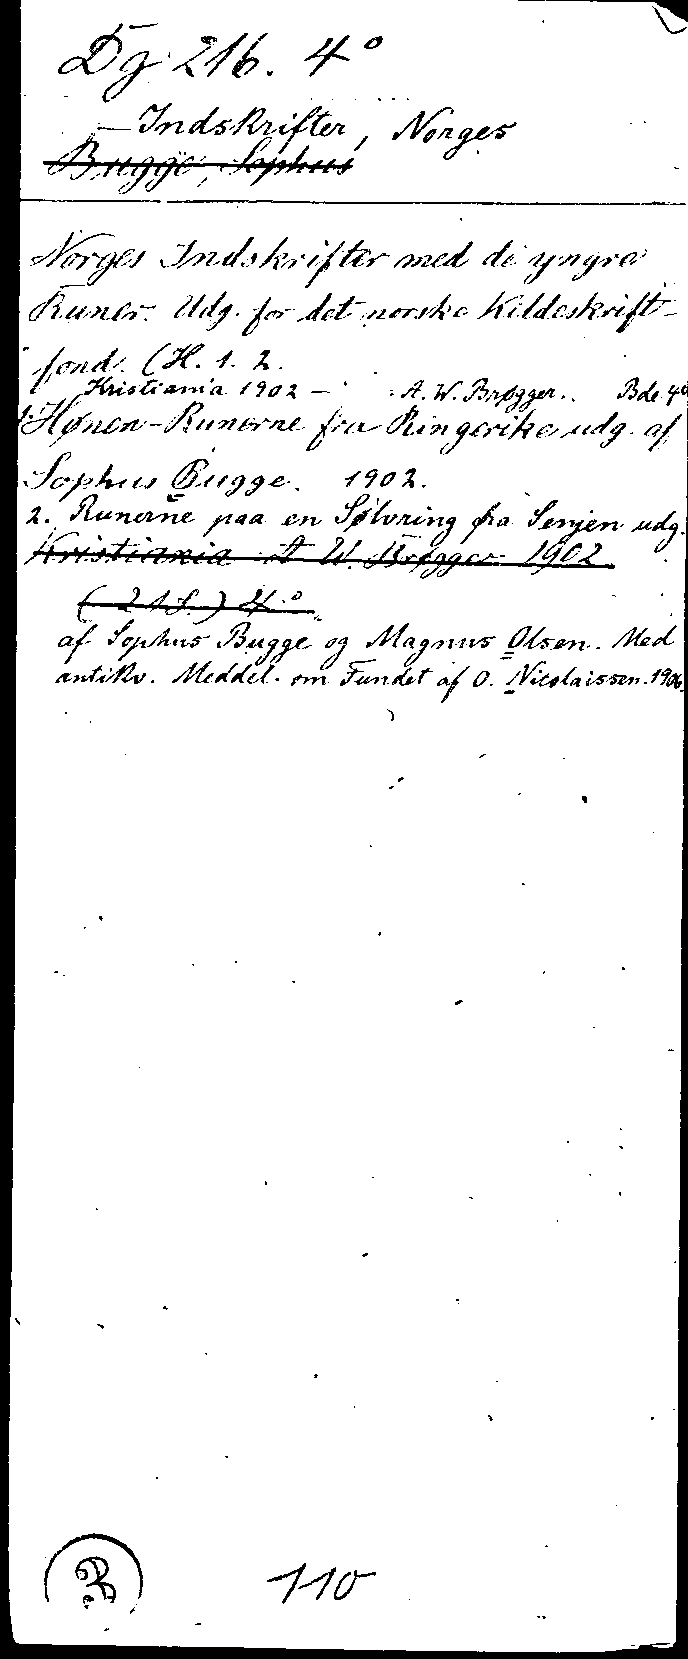 Dg 216. 4°
— Indskrifter, Norges
Bugge, Sophus
Norges Indskrifter med de yngre
Runer. Udg. for det norske Kildeskrift-
fond. (H. 1. 2.
Kristiania 1902 – A. W. Brøgger. Bde 4°
1. Hønen-Runerne fra Ringerike udg. af
Sophus Bugge. 1902.
2. Runerne paa en Sølvring fra Senjen udg.
Kristiania A W. Brøgger 1902
(21 S.) 4°
af Sophus Bugge og Magnus Olsen. Med
antikv. Meddel. om Fundet af O. Nicolaissen. 1906.
110